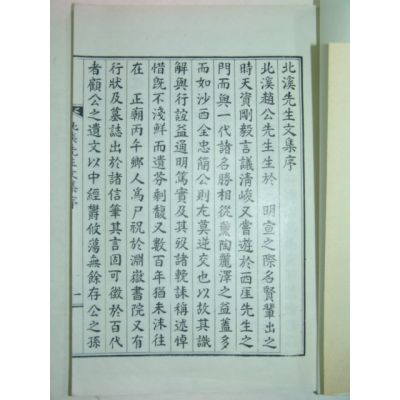 北溪先生文集序
北溪趙公先生生於 明宣之際名賢輩出之
時天資剛毅言議清峻又嘗遊於西厓先生之
門而與一代諸名勝相從薰陶麗澤之益蓋多
而如沙西全忠簡公則尤莫逆交也以故其識
解與行誼益通明篤實及其歿諸輓誄稱述悼
惜旣不淺鮮而遺芬剩馥又數百年猶未沫往
在 正廟丙午鄕人爲尸祝於淵嶽書院又有
行狀及墓誌出於諸信筆其言固可徵於百代
者顧公之遺文以中經欝攸蕩無餘存公之孫
北溪先生文集序
一